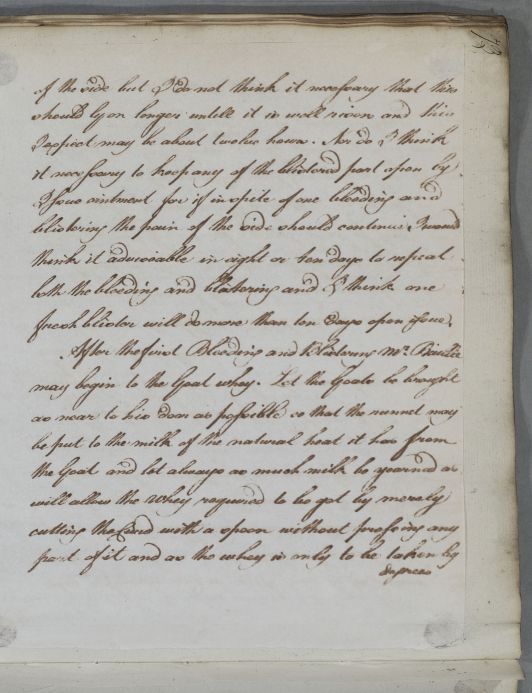 of the side but I do not think it necessary that this
should ly on longer untill it is well risen and this
I expect may be about twelve hours. Nor do I think
it necessary to keep any of the blistered part open by
Issue ointment for if in spite of one bleeding and
blistering the pain of the side should continue I would
think it adviceable in eight or ten days to repeat
both the bleeding and blistering and I think one
fresh blister will do more than ten days open Issue.
After the first Bleeding and Blistering Mr.
may begin to the Goat whey. Let the Goats be brought
as near to his door as possible so that the runnet may
be put to the milk of the natural heat it has from
the Goat and let always as much milk be yearned as
will allow the Whey required to be got by merely
cutting the Curd with a spoon without pressing any
part of it and as the whey is only to be taken by
degrees